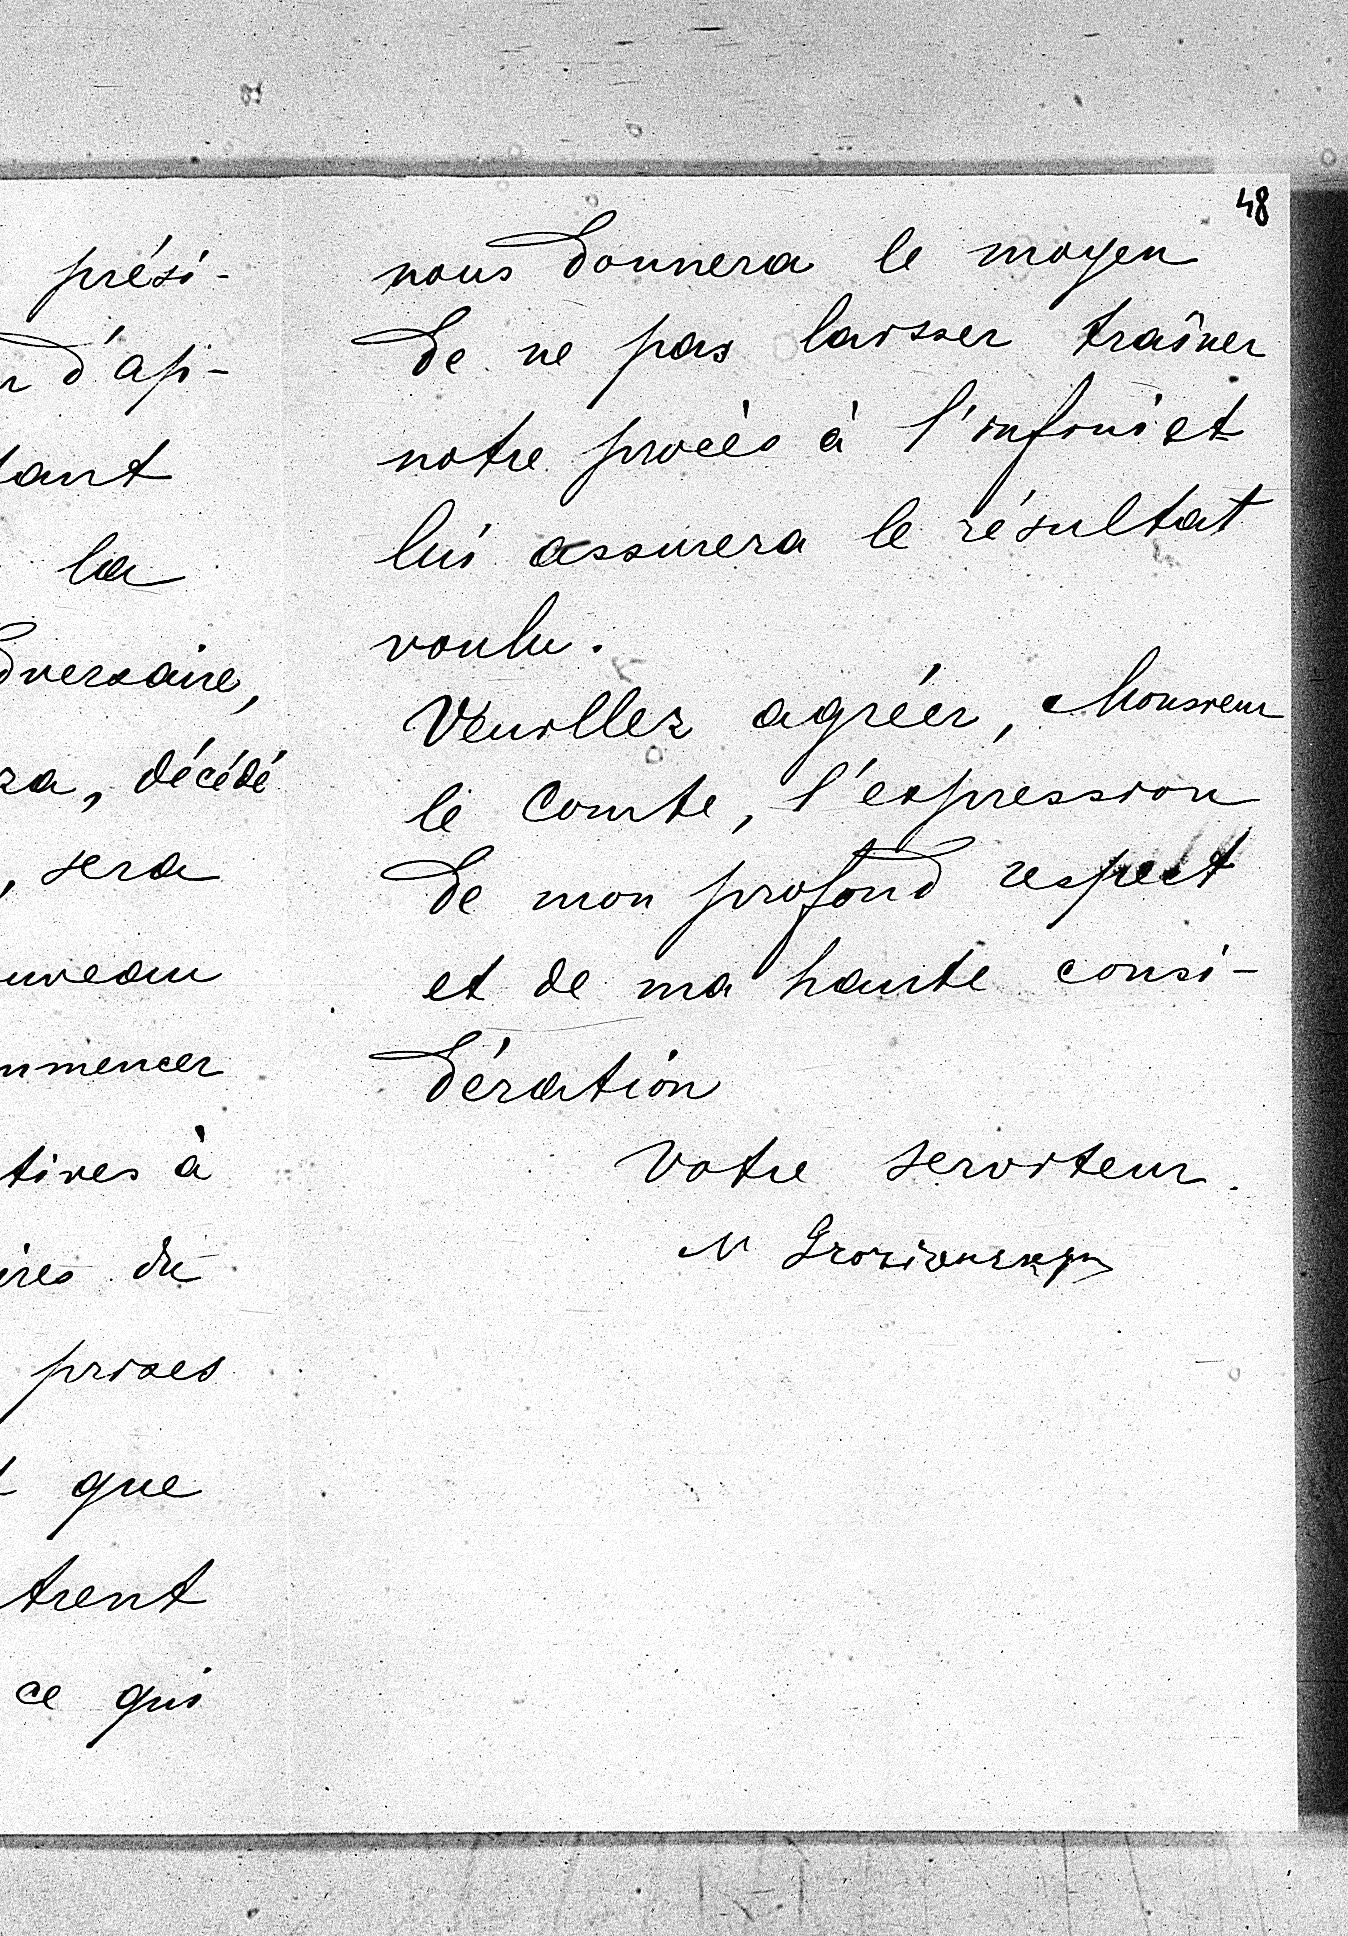 48
prési-
d'ap-
tant
la
dversaire,
ra, décédé
, sera
uveau
mmencer
tives à
ires du
prises
que
trent
ce qui
nous donnera le moyen
de ne pas laisser traîner
notre procès à l'infini et
lui assurera le résultat
voulu.
Veuillez agréer, Monsieur
le Comte, l'expression
de mon profond respect
et de ma haute consi-
dération
Votre serviteur.
M